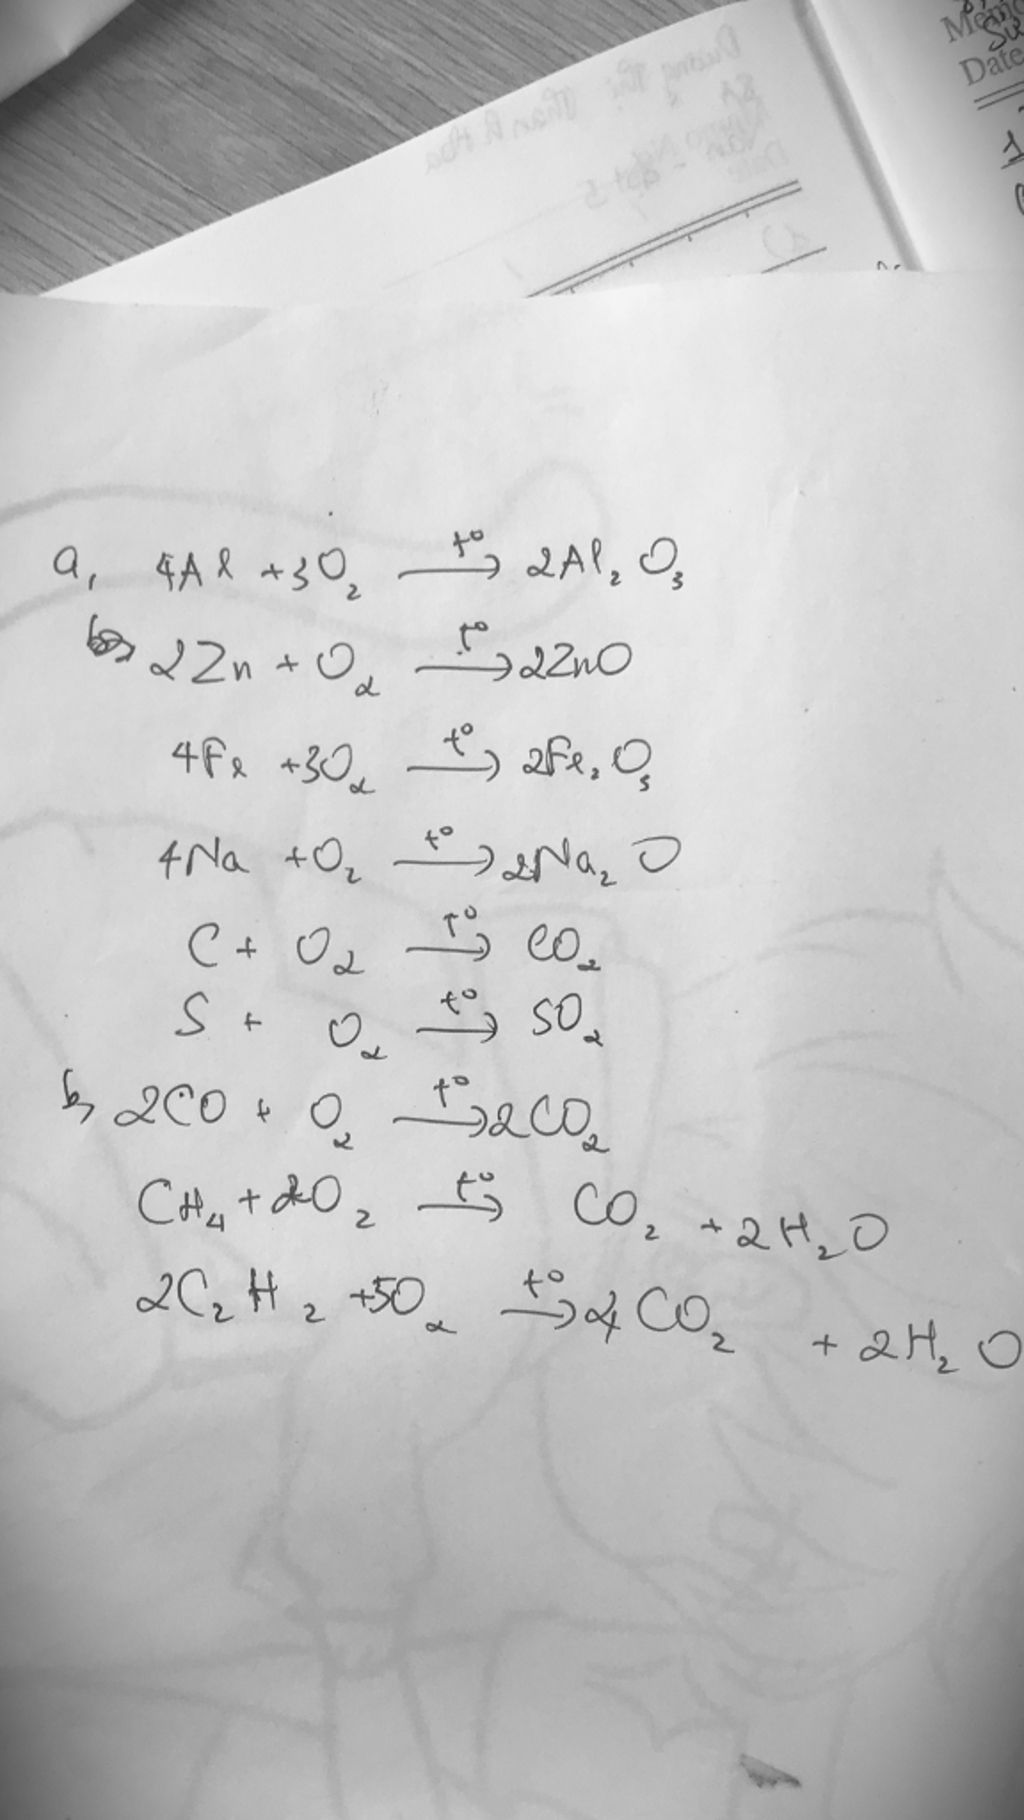 Memo
Date
a, 4Al + 3O₂ —t°→ 2Al₂O₃
2Zn + O₂ —t°→ 2ZnO
4Fe + 3O₂ —t°→ 2Fe₂O₃
4Na + O₂ —t°→ 2Na₂O
C + O₂ —t°→ CO₂
S + O₂ —t°→ SO₂
b, 2CO + O₂ —t°→ 2CO₂
CH₄ + 2O₂ —t°→ CO₂ + 2H₂O
2C₂H₂ + 5O₂ —t°→ 4CO₂ + 2H₂O